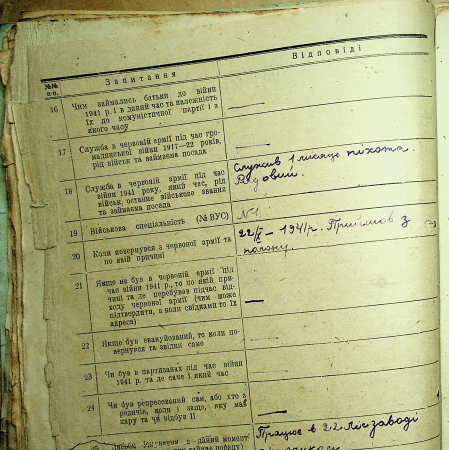 №№ п.п.
Запитання
Відповіді
16
Чим займались батьки до війни
1941 р. і в даний час та належність
їх до комуністичної партії і з
якого часу
—
17
Служба в червоній армії під час гро-
мадянської війни 1917—22 років,
рід військ та займаєма посада
—
18
Служба в червоній армії під час
війни 1941 року, який час, рід
військ, останнє військове звання
та займаєма посада
Служив 1 місяць піхота.
Рядовий.
19
Військова спеціальність (№ ВУС)
№1
20
Коли повернувся з червоної армії та
по якій причині
22/X — 1941 р. Прийшов з
полону.
21
Якщо не був в червоній армії під
час війни 1941 р., то по якій при-
чині та де перебував підчас відхо-
ду червоної армії (чим може
підтвердити, а коли свідками то їх
адреса)
—
22
Якщо був евакуйований, то коли по-
вернувся та звідки саме
23
Чи був в партизанах під час війни
1941 р. та де саме і який час
—
24
Чи був репресований сам, або хто з
родичів, коли і защо, яку мав
кару та чи відбув її
—
в даний момент
Працює в 22 Лісзаводі